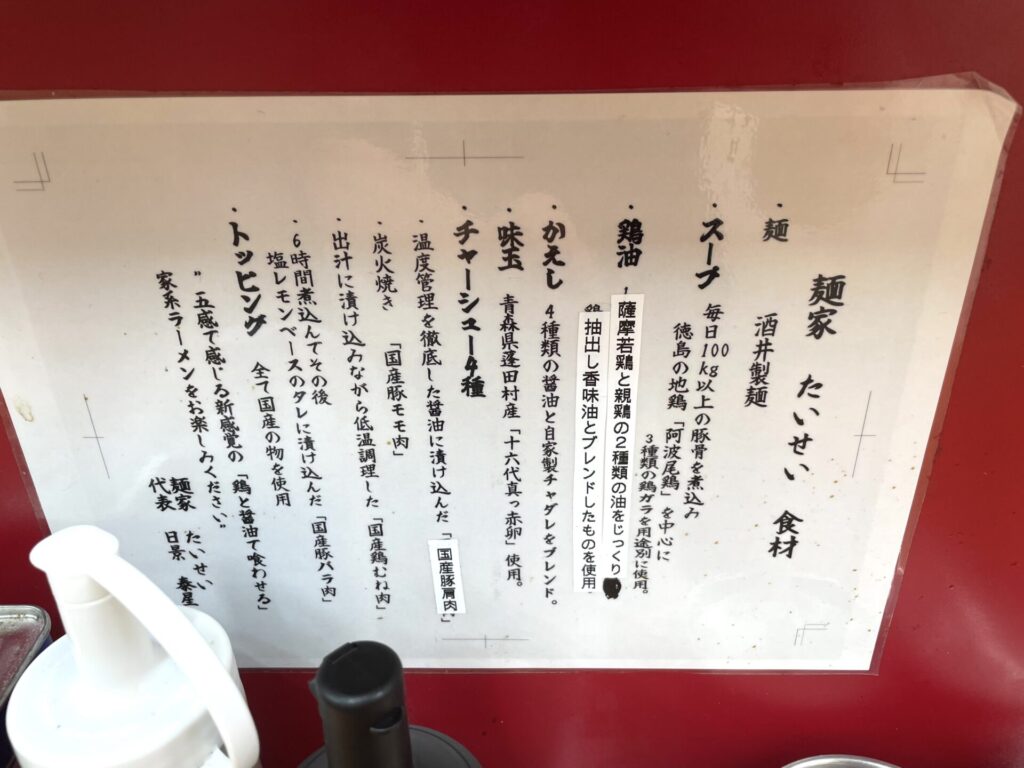 麺家 たいせい 食材
・麺 酒井製麺
・スープ 毎日100kg以上の豚骨を煮込み
徳島の地鶏「阿波尾鶏」を中心に
3種類の鶏ガラを用途別に使用。
・鶏油 薩摩若鶏と親鶏の2種類の油をじっくり
抽出し香味油とブレンドしたものを使用
・かえし 4種類の醤油と自家製チャダレをブレンド。
・味玉 青森県蓬田村産「十六代真っ赤卵」使用。
・チャーシュー4種
・温度管理を徹底した醤油に漬け込んだ「国産豚肩肉」
・炭火焼き 「国産豚モモ肉」
・出汁に漬け込みながら低温調理した「国産鶏むね肉」
・6時間煮込んでその後
塩レモンベースのタレに漬け込んだ「国産豚バラ肉」
・トッピング 全て国産の物を使用
"五感で感じる新感覚の「鶏と醤油で喰わせろ」
家系ラーメンをお楽しみください"
麺家 たいせい
代表 日景